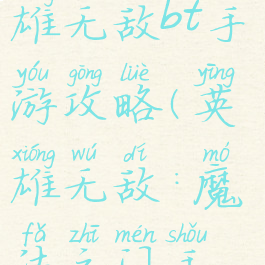 雄无敌bt手
yóu gōng lüè yīng
游攻略(英
xióng wú dí mó
雄无敌:魔
fǎ zhī mén shǒu
法之门手